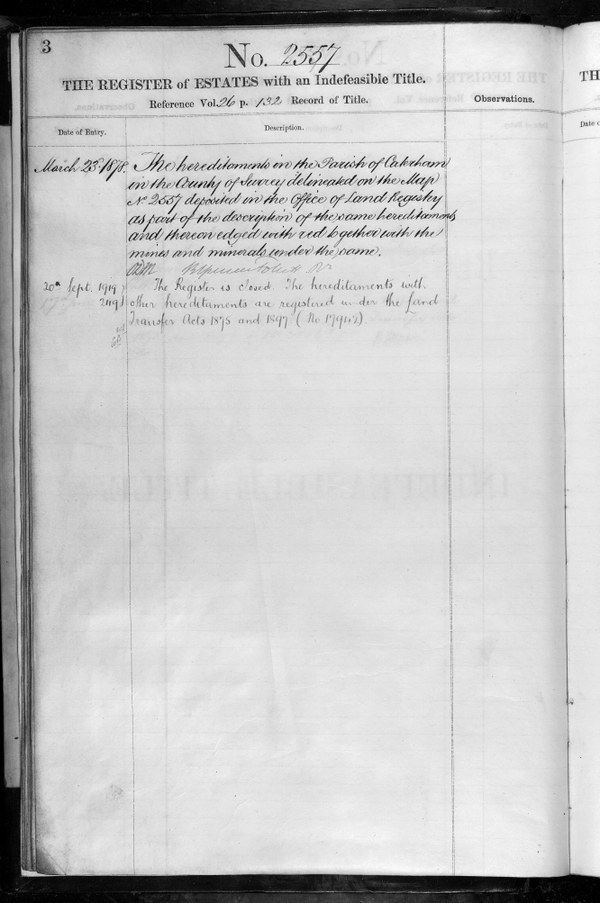 3
No. 2557
THE REGISTER of ESTATES with an Indefeasible Title.
Reference Vol. 26 p. 132 Record of Title.
Observations.
Date of Entry.
Description.
March 23rd 1878.
The hereditaments in the Parish of Caterham
in the County of Surrey delineated on the Map
No 2557 deposited in the Office of Land Registry
as part of the description of the same hereditaments
and thereon edged with red together with the
mines and minerals under the same.
20th Sept. 1919
The Register is closed. The hereditaments with
other hereditaments are registered under the Land
Transfer Acts 1875 and 1897
TH
Date o